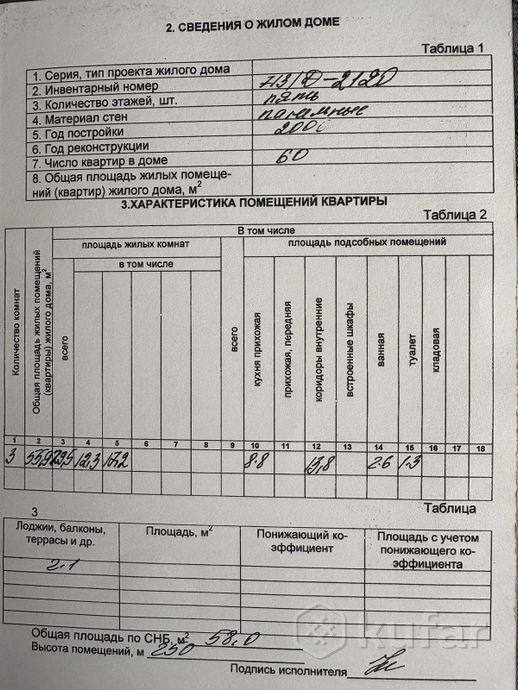 2. СВЕДЕНИЯ О ЖИЛОМ ДОМЕ
Таблица 1
1. Серия, тип проекта жилого дома
2. Инвентарный номер 713/D-2120
3. Количество этажей, шт. пять
4. Материал стен панельные
5. Год постройки
6. Год реконструкции
7. Число квартир в доме 60
8. Общая площадь жилых помеще-
ний (квартир) жилого дома, м²
3.ХАРАКТЕРИСТИКА ПОМЕЩЕНИЙ КВАРТИРЫ
Таблица 2
Количество комнат
Общая площадь жилых помещений (квартиры) жилого дома, м²
В том числе
площадь жилых комнат
площадь подсобных помещений
всего
в том числе
всего
кухня прихожая
прихожая, передняя
коридоры внутренние
встроенные шкафы
ванная
туалет
кладовая
1 2 3 4 5 6 7 8 9 10 11 12 13 14 15 16 17 18
3 55,9 29,5 12,3 17,2 8.8 13,8 2.6 1.3
3
Таблица
Лоджии, балконы, террасы и др.
Площадь, м²
Понижающий ко-эффициент
Площадь с учетом понижающего ко-эффициента
2.1
Общая площадь по СНБ, м² 58,0
Высота помещений, м 250
Подпись исполнителя
kufar